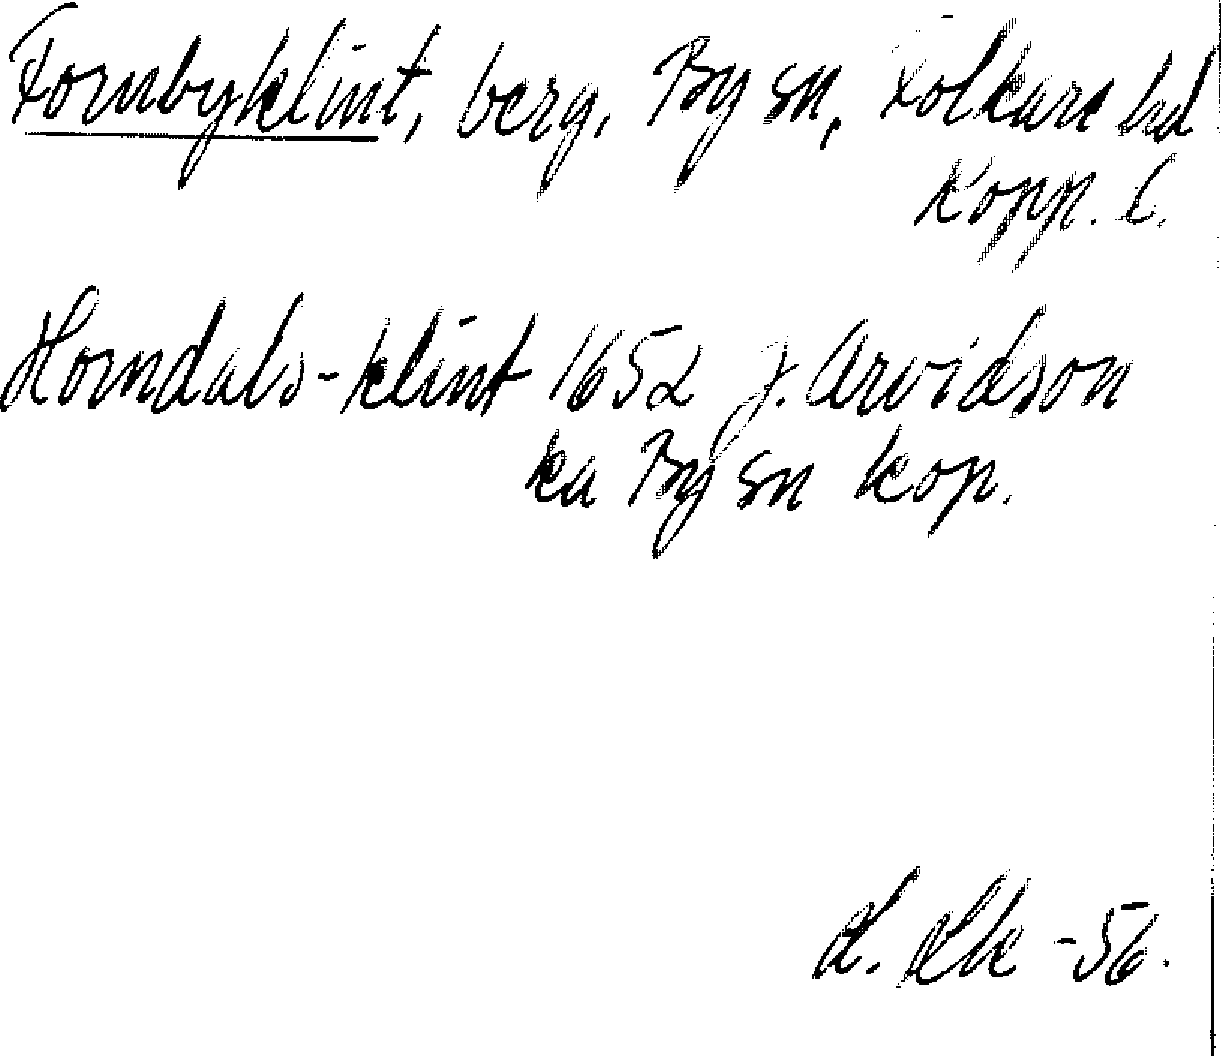 Fornbyklint, berg, By sn, Folkare hd
Kopp. l.
Horndals-klint 1652 J. Arvidson
ka By sn kop.
-56.